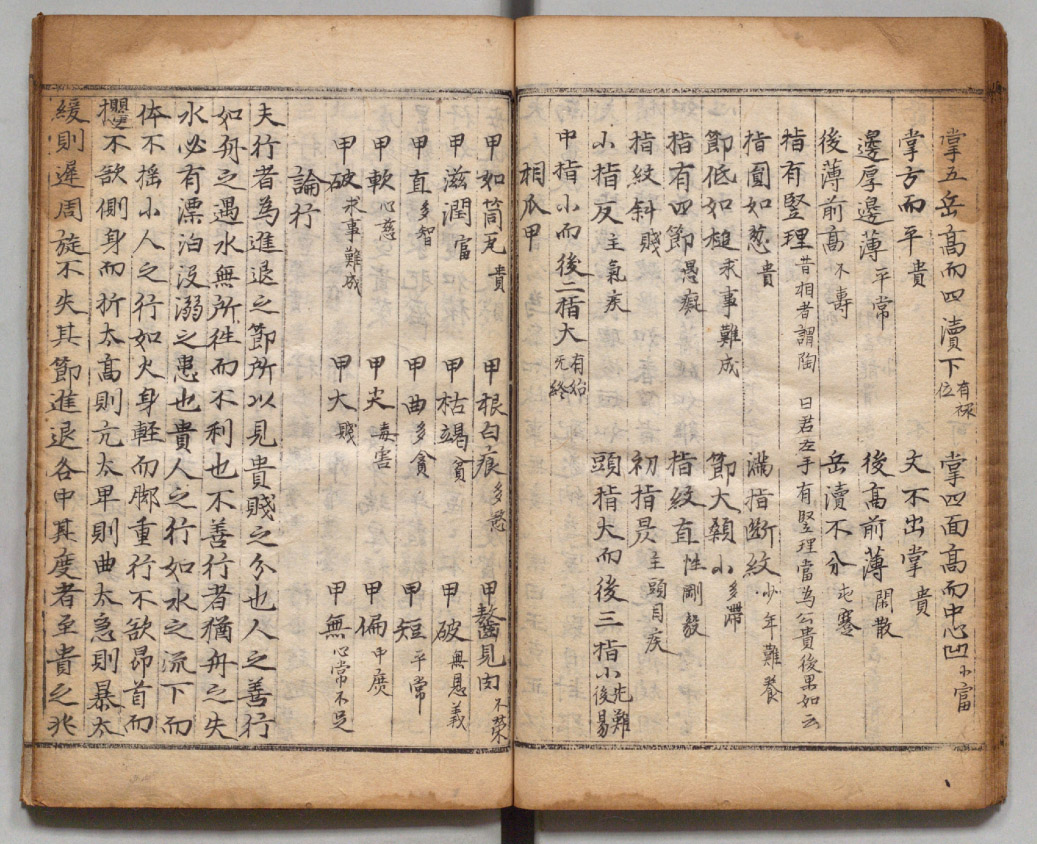 掌五岳高而四瀆下有祿位 掌四面高而中心凹小富
掌方而平貴 文不出掌貴
邊厚邊薄平常 後高前薄閑散
後薄前高不壽 岳瀆不分屯蹇
指有竪理昔相者謂陶 曰君左手有竪理當為公貴後果如云
指圓如葱貴 滿指断紋少年難養
節低如槌求事難成 節大顙小多滯
指有四節愚癡 指紋直性剛毅
指紋斜賤 初指㫮主頭目疾
小指反主氣疾 頭指大而後三指小先難後易
中指小而後二指大有始无終
相爪甲
甲如筒瓦貴 甲根白痕多憂 甲齧見肉不榮
甲滋潤富 甲枯竭貧 甲破無恩義
甲直多智 甲曲多貪 甲短平常
甲軟心慈 甲尖毒害 甲偏中庶
甲破求事難成 甲大賤 甲無心常不足
論行
夫行者為進退之節所以見貴賤之分也人之善行
如舟之遇水無所徃而不利也不善行者猶舟之失
水必有漂泊没溺之患也貴人之行如水之流下而
体不摇小人之行如火身軽而脚重行不欲昂首而
不欲側身而折太高則亢太卑則曲太急則暴太
緩則遲周旋不失其節進退各中其度者至貴之兆